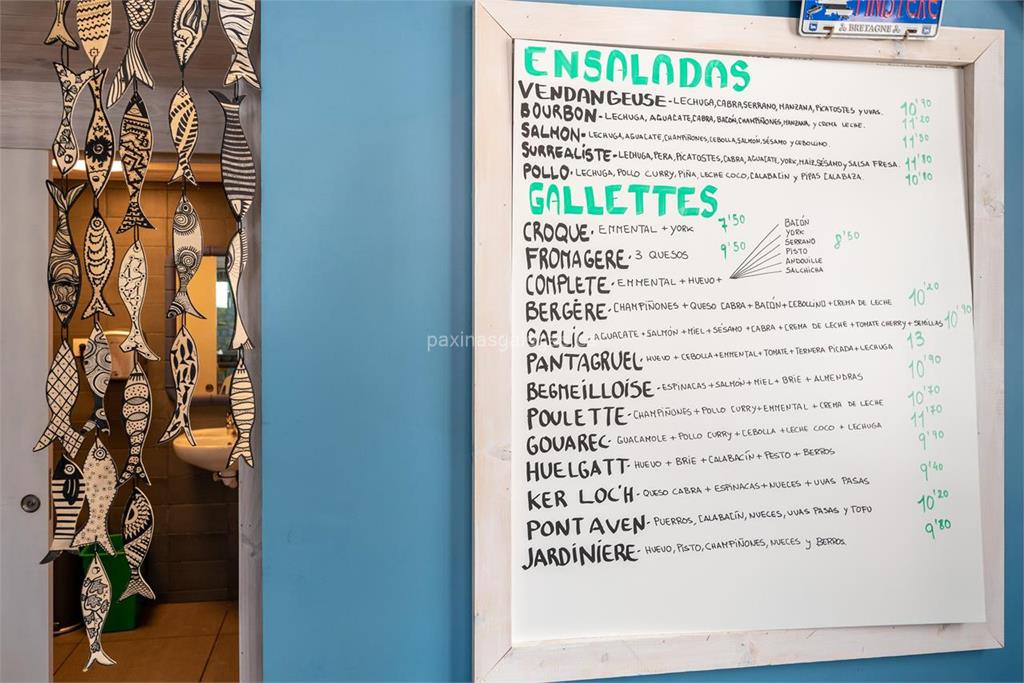 BRETAGNE
ENSALADAS
VENDANGEUSE - LECHUGA, CABRA, SERRANO, MANZANA, PICATOSTES y UVAS. 10'90
BOURBON - LECHUGA, AGUACATE, CABRA, BACÓN, CHAMPIÑONES, MANZANA, y CREMA LECHE. 11'20
SALMON - LECHUGA, AGUACATE, CHAMPIÑONES, CEBOLLA, SALMÓN, SÉSAMO y CEBOLLINO. 11'50
SURREALISTE - LECHUGA, PERA, PICATOSTES, CABRA, AGUACATE, YORK, MAÍZ, SÉSAMO y SALSA FRESA. 11'80
POLLO - LECHUGA, POLLO CURRY, PIÑA, LECHE COCO, CALABACÍN y PIPAS CALABAZA. 10'80
GALLETTES
CROQUE - EMMENTAL + YORK 7'50
FROMAGERE - 3 QUESOS 9'50
COMPLETE - EMMENTAL + HUEVO +
BACÓN
YORK
SERRANO
PISTO
ANDOUILLE
SALCHICHA
8'50
BERGÈRE - CHAMPIÑONES + QUESO CABRA + BACÓN + CEBOLLINO + CREMA DE LECHE 10'20
GAELIC - AGUACATE + SALMÓN + MIEL + SÉSAMO + CABRA + CREMA DE LECHE + TOMATE CHERRY + SEMILLAS 10'90
PANTAGRUEL - HUEVO + CEBOLLA + EMMENTAL + TOMATE + TERNERA PICADA + LECHUGA 13
BEGMEILLOISE - ESPINACAS + SALMÓN + MIEL + BRIE + ALMENDRAS 10'90
POULETTE - CHAMPIÑONES + POLLO CURRY + EMMENTAL + CREMA DE LECHE 10'70
GOUAREC - GUACAMOLE + POLLO CURRY + CEBOLLA + LECHE COCO + LECHUGA 11'70
HUELGATT - HUEVO + BRIE + CALABACÍN + PESTO + BERROS 9'90
KER LOC'H - QUESO CABRA + ESPINACAS + NUECES + UVAS PASAS 9'40
PONT AVEN - PUERROS, CALABACÍN, NUECES, UVAS PASAS y TOFU 10'20
JARDINIERE - HUEVO, PISTO, CHAMPIÑONES, NUECES y BERROS. 9'80